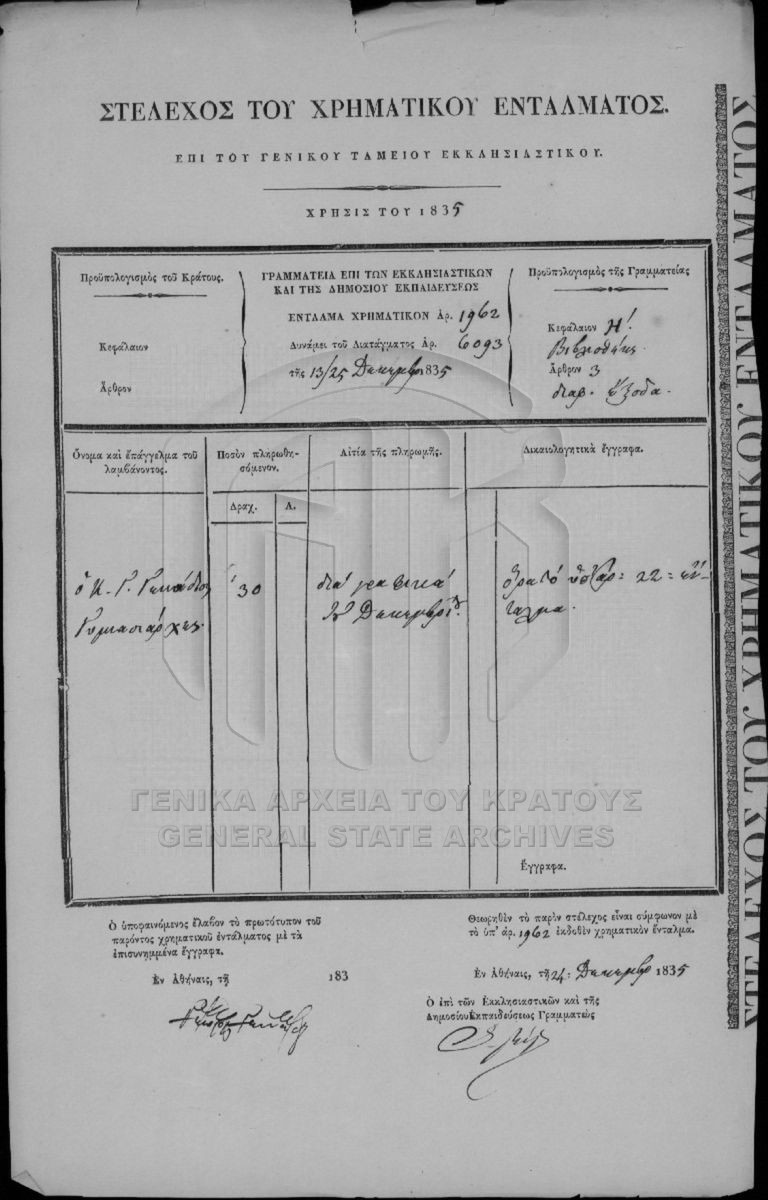 ΣΤΕΛΕΧΟΣ ΤΟΥ ΧΡΗΜΑΤΙΚΟΥ ΕΝΤΑΛΜΑΤΟΣ.
ΕΠΙ ΤΟΥ ΓΕΝΙΚΟΥ ΤΑΜΕΙΟΥ ΕΚΚΛΗΣΙΑΣΤΙΚΟΥ.
ΧΡΗΣΙΣ ΤΟΥ 1835
Προϋπολογισμὸς τοῦ Κράτους.
Κεφάλαιον
Ἄρθρον
ΓΡΑΜΜΑΤΕΙΑ ΕΠΙ ΤΩΝ ΕΚΚΛΗΣΙΑΣΤΙΚΩΝ
ΚΑΙ ΤΗΣ ΔΗΜΟΣΙΟΥ ΕΚΠΑΙΔΕΥΣΕΩΣ
ΕΝΤΑΛΜΑ ΧΡΗΜΑΤΙΚΟΝ Ἀρ. 1962
Δυνάμει τοῦ Διατάγματος Ἀρ. 6093
τῆς 13/25 Δεκεμβρ 1835
Προϋπολογισμὸς τῆς Γραμματείας
Κεφάλαιον Η'.
Βιβλιοθήκη
Ἄρθρον 3
διαφ. ἔξοδα.
Ὄνομα καὶ ἐπάγγελμα τοῦ
λαμβάνοντος.
Ποσὸν πληρωθη-
σόμενον.
Δραχ. Λ.
Αἰτία τῆς πληρωμῆς.
Δικαιολογητικὰ ἔγγραφα.
ὁ Κ. Γ. Γεννάδιος
Γυμνασιάρχης
30
διὰ γραφικὰ
τοῦ Δεκεμβρίου
ὅρα τὸ ὑπ' ἀρ = 22 = ἔν-
ταλμα.
Ἔγγραφα.
Ὁ ὑποφαινόμενος ἔλαβον τὸ πρωτότυπον τοῦ
παρόντος χρηματικοῦ ἐντάλματος μὲ τὰ
ἐπισυνημμένα ἔγγραφα.
Ἐν Ἀθήναις, τῇ 183
Γεώργιος Γεννάδιος
Θεωρηθὲν τὸ παρὸν στέλεχος εἶναι σύμφωνον μὲ
τὸ ὑπ' ἀρ. 1962 ἐκδοθὲν χρηματικὸν ἔνταλμα.
Ἐν Ἀθήναις, τῇ 24: Δεκεμβρ 1835
Ὁ ἐπὶ τῶν Ἐκκλησιαστικῶν καὶ τῆς
Δημοσίου Ἐκπαιδεύσεως Γραμματεὺς
ΣΤΕΛΕΧΟΣ ΤΟΥ ΧΡΗΜΑΤΙΚΟΥ ΕΝΤΑΛΜΑΤΟΣ
ΓΕΝΙΚΑ ΑΡΧΕΙΑ ΤΟΥ ΚΡΑΤΟΥΣ
GENERAL STATE ARCHIVES